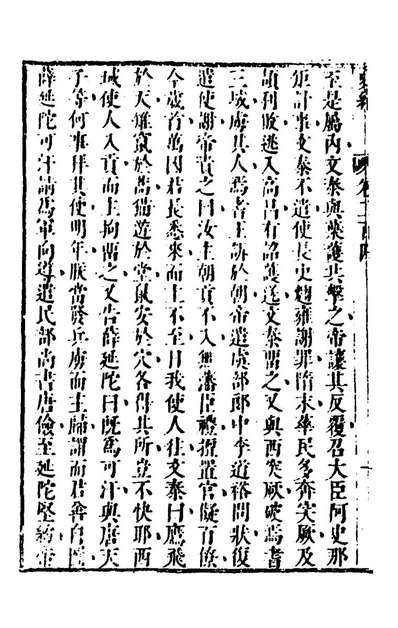 至是屬內文泰與葉護共擊之帝讓其反覆召大臣阿史那
矩計事文泰不遣使長史麴雍謝罪隋末華民多奔突厥及
頡利敗逃入高昌有詔護送文泰留之又與西突厥破焉耆
三城虜其人焉耆王訴於朝帝遣虞部郎中李道裕問狀復
遣使謝帝責之曰汝主朝貢不入無藩臣禮擅置官儗百僚
今歲首萬國君長悉來而主不至日我使人往文泰曰鷹飛
於天雉竄於蒿猫遊於堂鼠安於穴各得其所豈不快耶西
域使人入貢而主拘留之又告薛延陀曰既爲可汗與唐天
子等何事拜其使明年朕當發兵虜而主歸謂而君善自圖
薛延陀可汗請爲軍向導遣民部尚書唐儉至延陀堅約帝